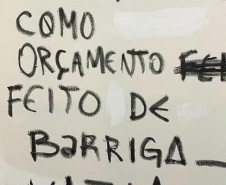 COMO
ORÇAMENTO
FEITO DE
BARRIGA